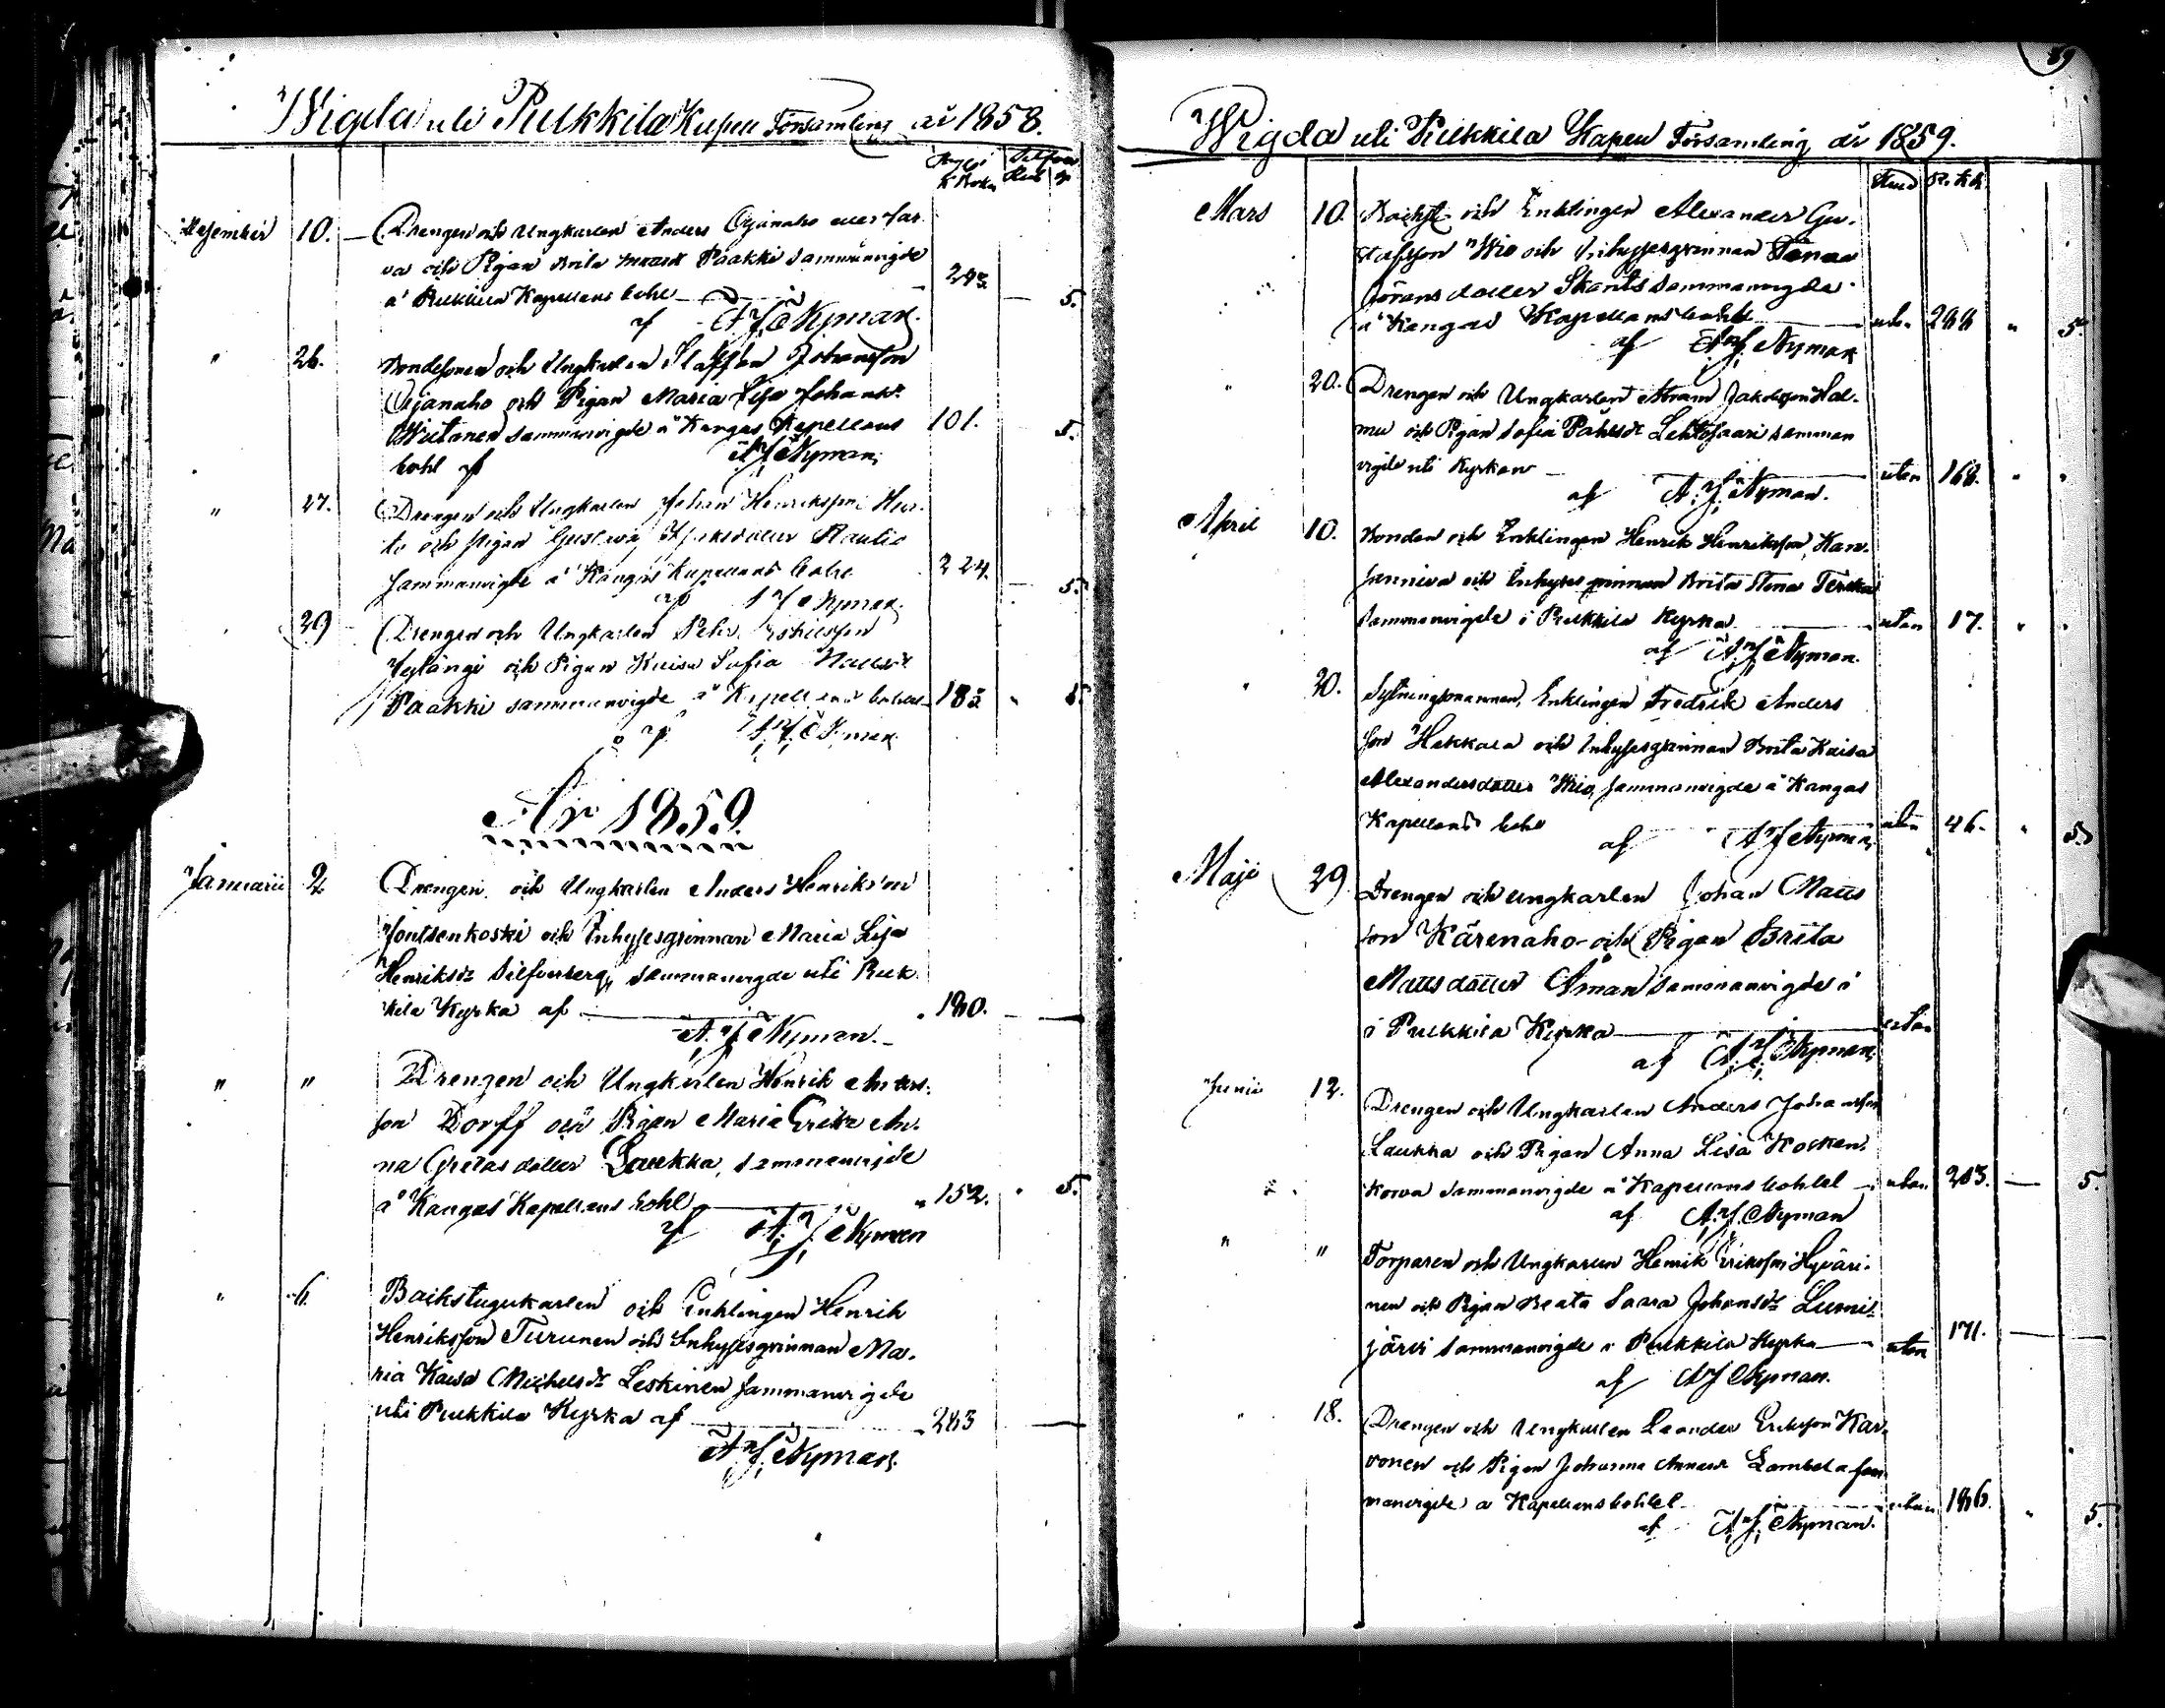 Wigda uti Pulkkila Kapell Församling år 1858.
December 10. Drengen och Ungkarlen Anders Ojanaho eller
va och Pigan Brita Paakki sammanvigde
å Pulkkila Kapellans bohl 243. 5.
af A. J. Nyman.
" 26. Bondesonen och Ungkarlen Staffan Johansson
Ojanaho och Pigan Maria Lisa Johansdr
Wiitanen sammanvigde å Kangas Kapellans 101. 5.
bohl af A. J. Nyman.
" 27. Drengen och Ungkarlen Johan Henriksson
och Pigan Gustava Raulio
sammanvigde å Kangas Kapellans bohl 224. 5.
af A. J. Nyman.
29 Drengen och Ungkarlen Pehr
och Pigan Kaisa Sofia
Paakki sammanvigde å Kapellans bohlet 185 " 5.
af A. J. Nyman
År 1859.
Januarii 2 Drengen och Ungkarlen Anders Henriksson
Joutsenkoski och Inhysesqvinnan Maria Lisa
Henriksdr Silfverberg, sammanvigde uti Pulk
kila Kyrka af 180. —
A. J. Nyman.
" " Drengen och Ungkarlen Henrik Anders
son Dorff och Pigan Maria Greta An
na Gretas dotter Laukka, sammanvigde
å Kangas Kapellans bohl " 152. " 5.
af A. J. Nyman
" 6. Backstugukarlen och Enklingen Henrik
Henriksson Turunen och Inhysesqvinnan Ma
ria Kaisa Michelsdr Leskinen sammanvigde
uti Pulkkila Kyrka af 283 —
A. J. Nyman.
89
Wigda uti Pulkkila Kapell Församling år 1859.
Mars 10. Backst. och Enklingen Alexander Gu
stafsson Wio och Inhysesqvinnan
Jörans dotter Skants sammanvigde
å Kangas Kapellans bohl utan 288 " 5.
af A. J. Nyman
" 20. Drengen och Ungkarlen Abram Jakobsson Hal
mu och Pigan Sofia Pährsdr Lehtosaari samman
vigde uti Kyrkan utan 168. " "
af A. J. Nyman.
April 10. Bonden och Enklingen Henrik Henriksson Kan
sanniva och Inhyses qvinnan Brita Stina
sammanvigde i Pulkkila Kyrka utan 17. " "
af A. J. Nyman.
" 20. Sytningsmannen, Enklingen Fredrik Anders
son Hakkala och Inhysesqvinnan Brita Kaisa
Alexandersdotter Wio, sammanvigde å Kangas
Kapellans bohl utan 46. " 5.
af A. J. Nyman
Maji 29 Drengen och ungkarlen Johan Matts
son Kärenaho och Pigan Brita
Mattsdotter Åman sammanvigde i
i Pulkkila Kyrka utan
af A. J. Nyman
Junii 12. Drengen och Ungkarlen Anders Johansson
Laukka och Pigan Anna Lisa Kocken
korva sammanvigde å Kapellans bohlet utan 203. — 5.
af A. J. Nyman
" " Torparen och Ungkarlen Henrik Eriksson Hyväri
nen och Pigan Beata Saara Johansdr Lumi
järvi sammanvigde i Pulkkila Kyrka utan 171. —
af A. J. Nyman.
" 18. Drengen och Ungkarlen Leander Eriksson Kar
vonen och Pigan Johanna Annasdr Lambela sam
manvigde å Kapellans bohlet utan 186. " 5.
af A. J. Nyman.